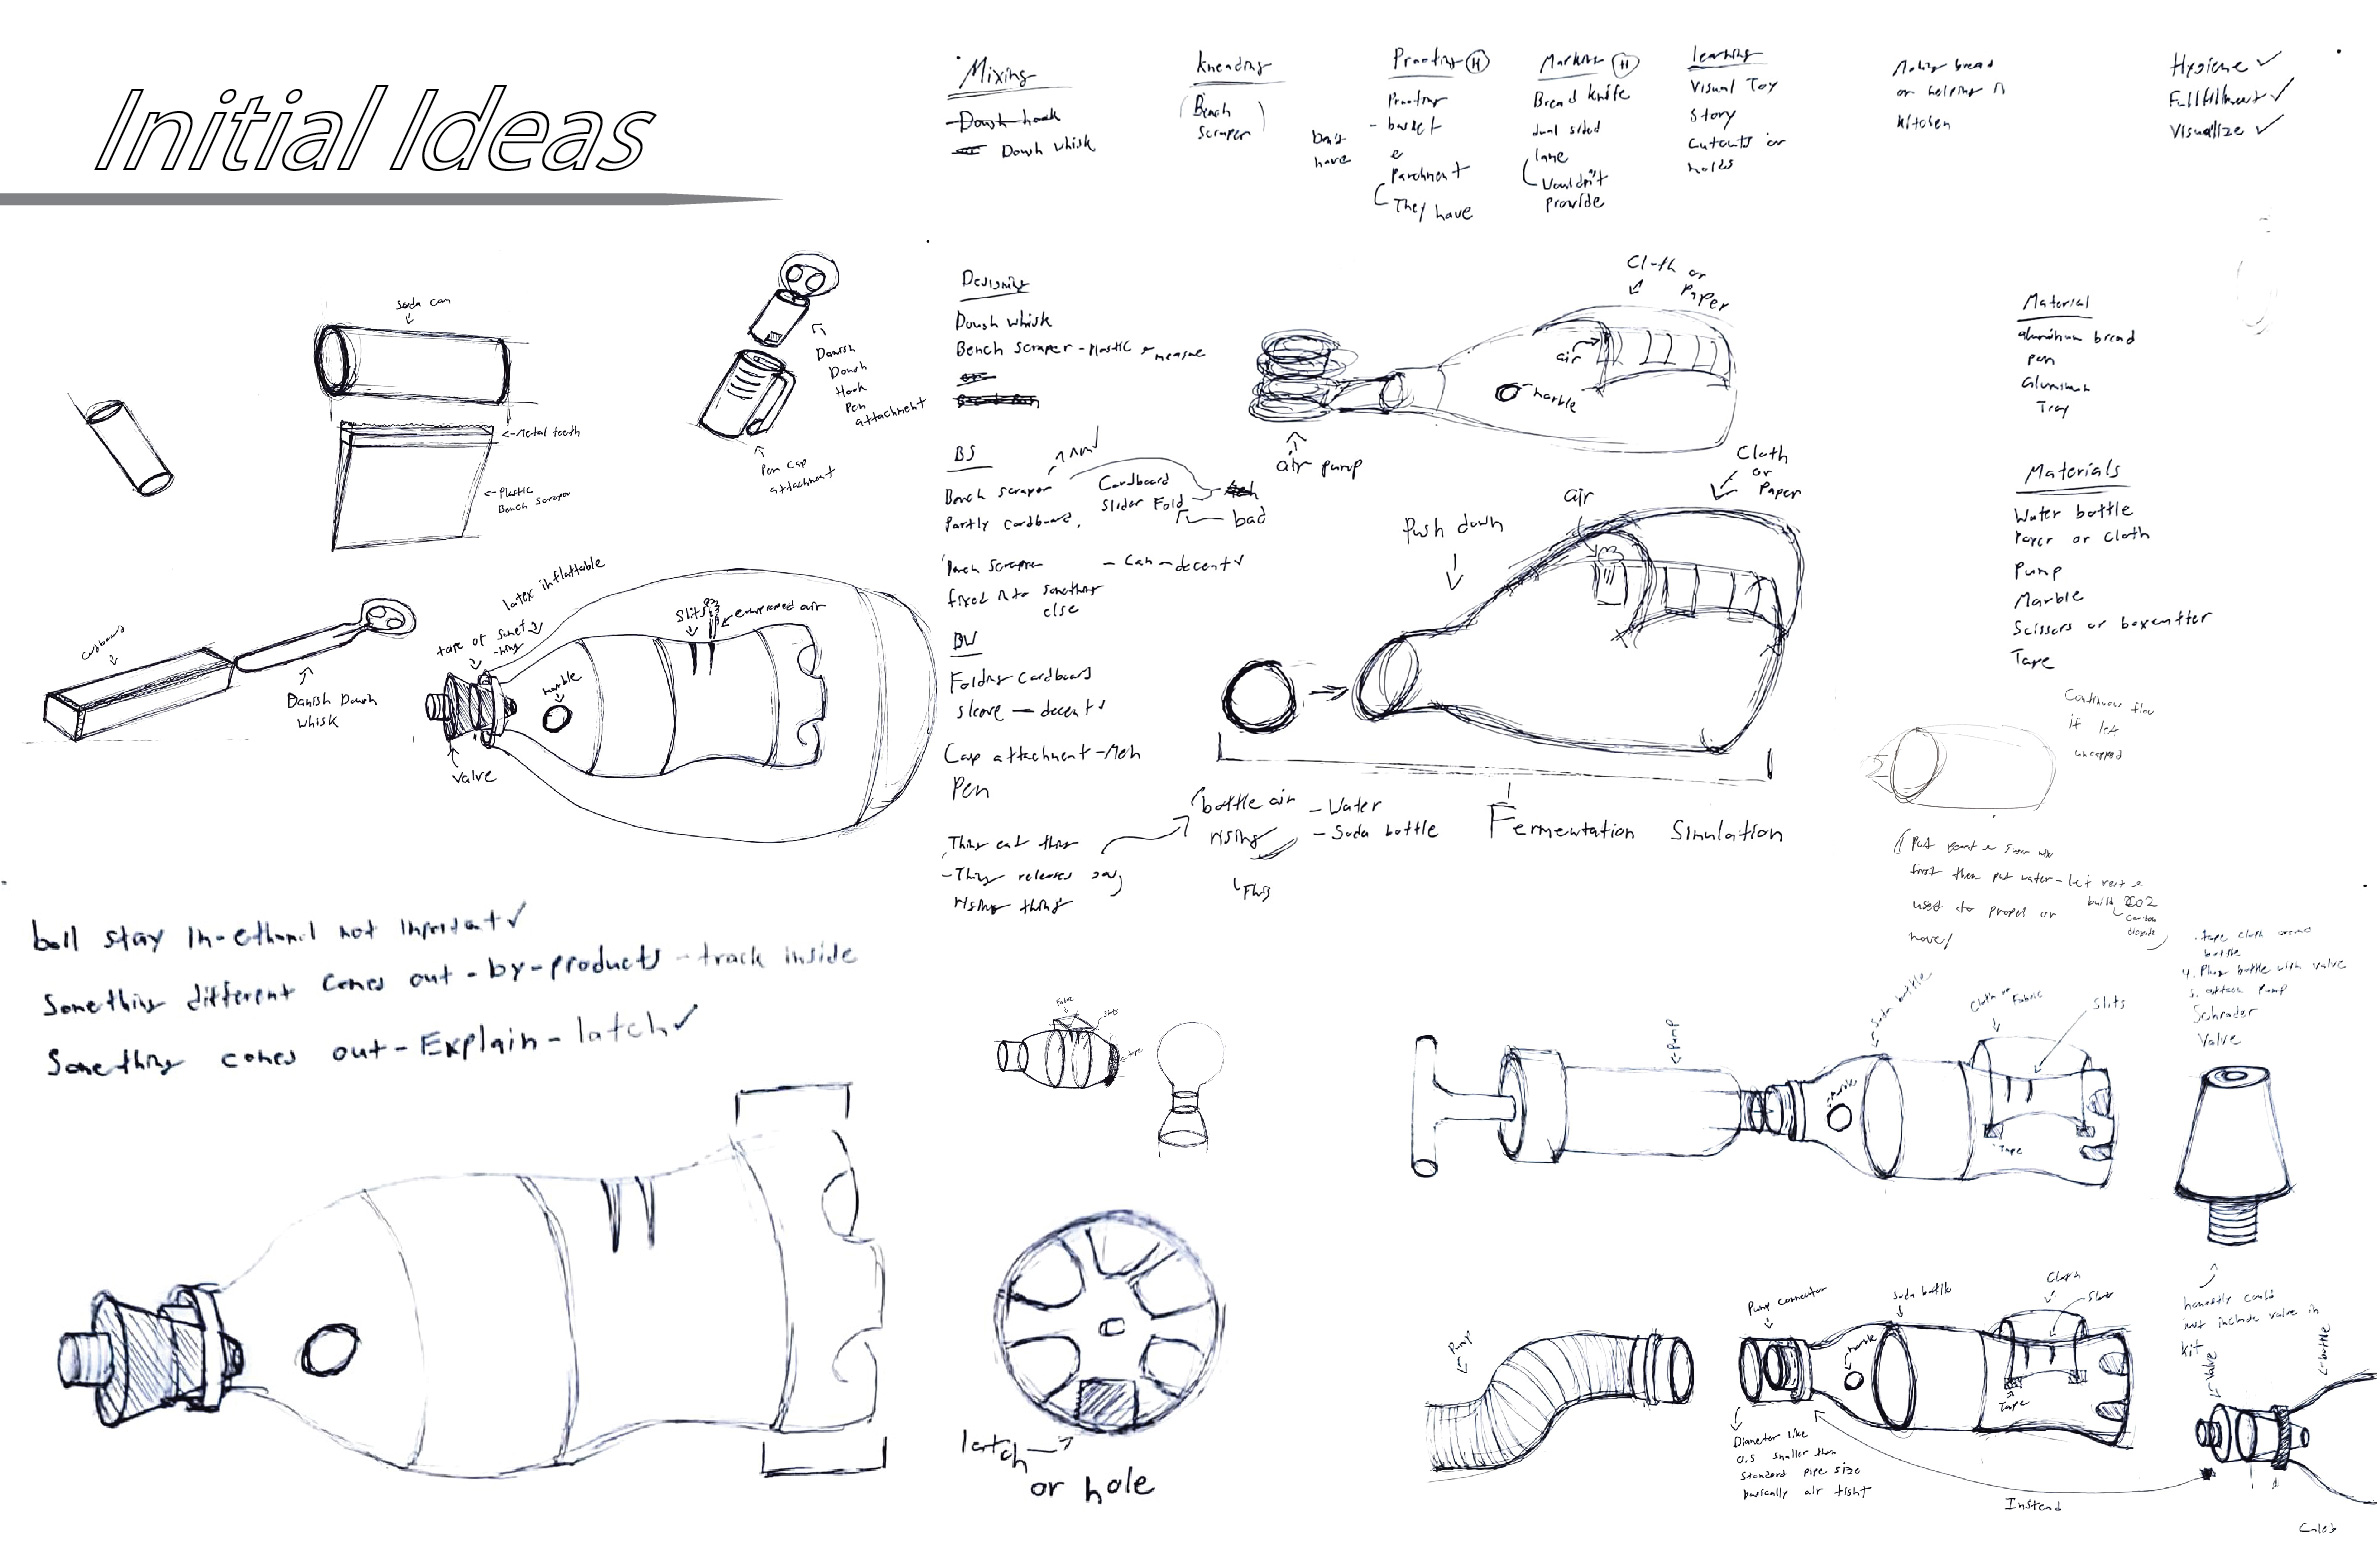 Initial Ideas
Mixing
Dough hook
Dough whisk
Kneading
(Bench
Scraper)
Proofing (H)
Proofing
- basket
&
Parchment
They have
Don't
have
Marking (H)
Bread knife
dual sided
lame
Wouldn't
provide
learning
Visual Toy
Story
Cutouts or
holes
Making bread
or helping in
kitchen
Hygiene ✓
Fullfillment ✓
Visualize ✓
Soda can
<-Metal teeth
<-Plastic
Bench scraper
Danish
Dough
Hook
Pen
attachment
Pen cap
attachment
Designing
Dough whisk
Bench scraper - Plastic & measure
BS
Bench scraper
Partly cardboard,
Cardboard
Slider Fold
bad
Bench scraper
fixed into something
else
- Can - decent ✓
BW
Folding Cardboard
sleeve - decent ✓
Cap attachment - Meh
Pen
Thing eat thing
- Thing releases
rising thing
bottle air
rising
- Water
- Soda bottle
Cloth or
Paper
air
marble
air pump
Cloth
or
Paper
air
Push down
Fermentation Simulation
Material
aluminum bread
pan
aluminum
Tray
Materials
Water bottle
Paper or Cloth
Pump
Marble
Scissors or boxcutter
Tape
Continuous flow
if left
uncapped
first then put water - let rest &
used to propel or
built CO2
Carbon
dioxide
hover
cardboard
Danish Dough
Whisk
latex inflattable
tape or somet
-hing
Slits
marble
valve
ball stay in - ethanol not important ✓
Something different comes out - by-products - track inside
Something comes out - Explain - latch ✓
latch
or hole
<-Pump
Soda bottle
Cloth or
Fabric
Slits
marble
Tape
. tape cloth around
bottle
4. Plug bottle with valve
5. attach Pump
Schrader
Valve
honestly could
just include valve in
kit
Pump
Pump connector
Soda bottle
Cloth
Slits
marble
Tape
Diameter like
0.5 smaller than
standard pipe size
basically air tight
<-Valve
<-bottle
Instead
Caleb